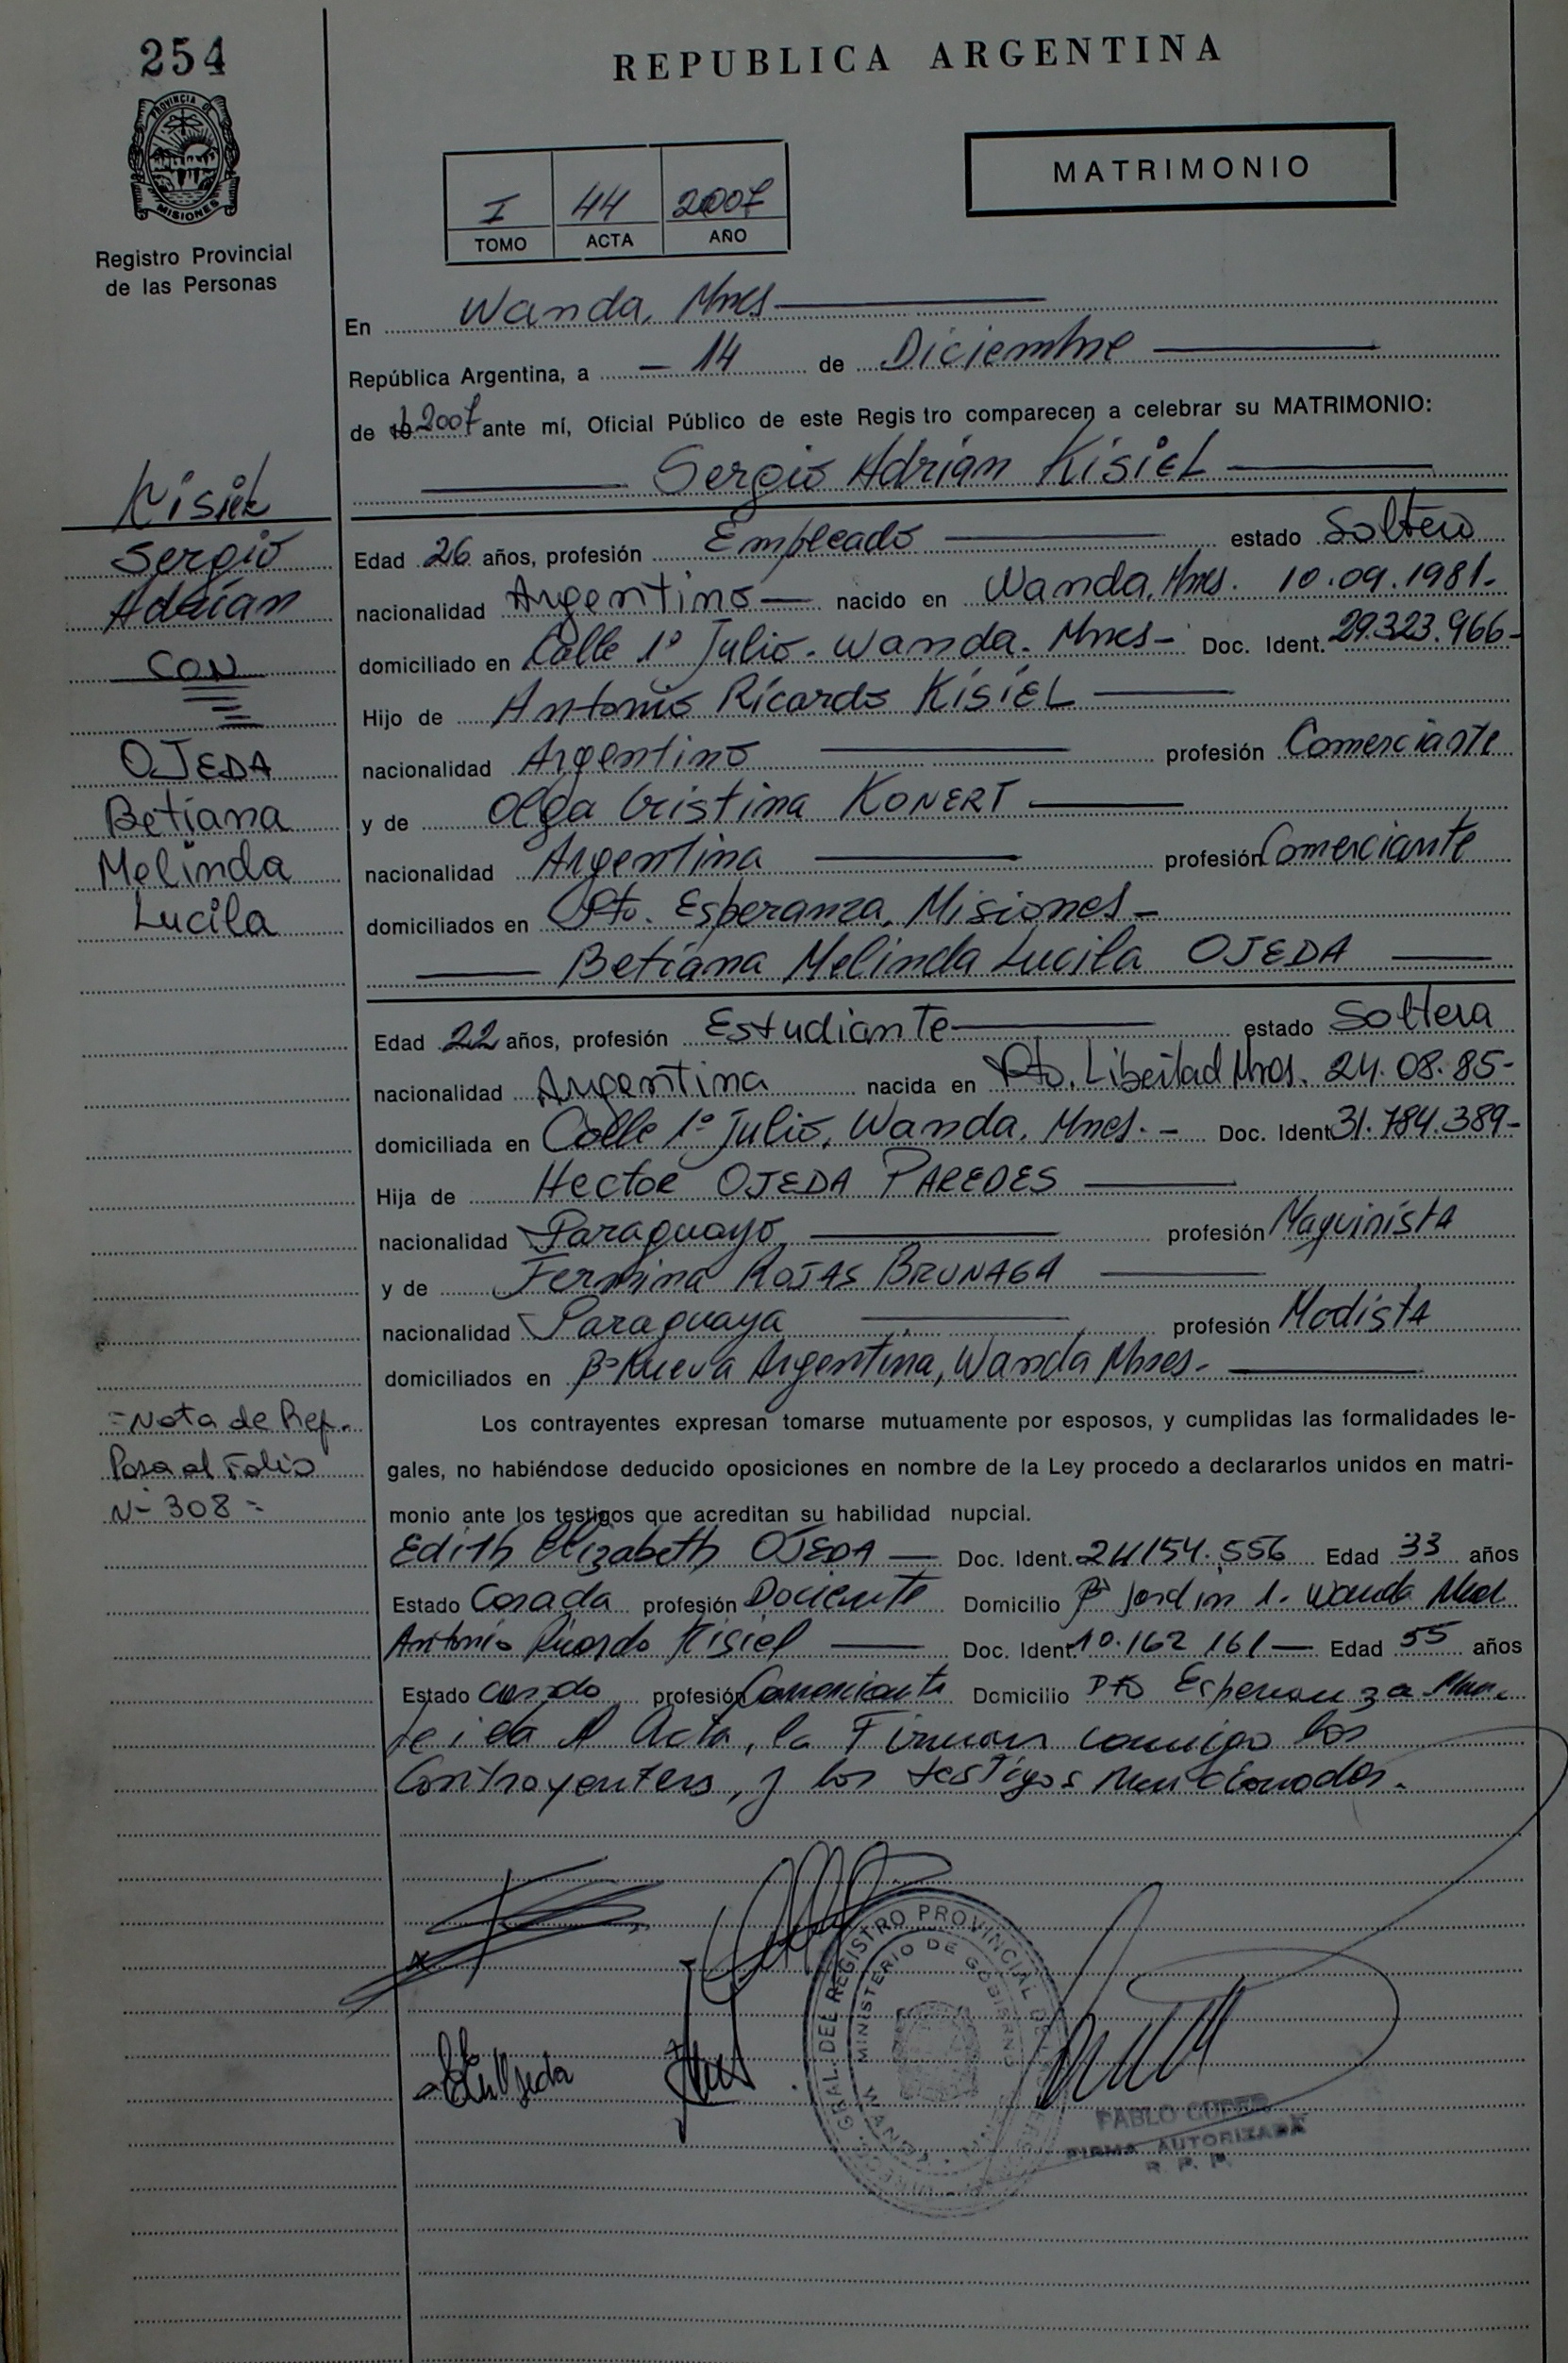 254
REPUBLICA ARGENTINA
PROVINCIA DE
MISIONES
Registro Provincial
de las Personas
MATRIMONIO
I 44 2007
TOMO ACTA AÑO
En Wanda, Mnes
República Argentina, a 14 de Diciembre
de 2007 ante mí, Oficial Público de este Regis tro comparecen a celebrar su MATRIMONIO:
Sergio Adrián KISIEL
Kisiel
Sergio
Adrián
CON
OJEDA
Betiana
Melinda
Lucila
Edad 26 años, profesión Empleado estado Soltero
nacionalidad Argentino nacido en Wanda, Mnes. 10.09.1981.
domiciliado en Calle 1º Julio. Wanda. Mnes- Doc. Ident. 29.323.966-
Hijo de Antonio Ricardo KISIEL
nacionalidad Argentino profesión Comerciante
y de Olga Cristina KONERT
nacionalidad Argentina profesión Comerciante
domiciliados en Pto. Esperanza, Misiones-
Betiana Melinda Lucila OJEDA
Edad 22 años, profesión Estudiante estado Soltera
nacionalidad Argentina nacida en Pto. Libertad Mnes. 24.08.85-
domiciliada en Calle 1º Julio, Wanda, Mnes.- Doc. Ident 31.784.389-
Hija de Hector OJEDA PAREDES
nacionalidad Paraguayo profesión Maquinista
y de Fermina ROJAS BRUNAGA
nacionalidad Paraguaya profesión Modista
domiciliados en Bº Nueva Argentina, Wanda Mnes.
=Nota de Ref.
Pasa al Folio
Nº 308=
Los contrayentes expresan tomarse mutuamente por esposos, y cumplidas las formalidades le-
gales, no habiéndose deducido oposiciones en nombre de la Ley procedo a declararlos unidos en matri-
monio ante los testigos que acreditan su habilidad nupcial.
Edith Elizabeth OJEDA Doc. Ident. 24154.556 Edad 33 años
Estado Casada profesión Docente Domicilio Bº Jardin 1. Wanda
Antonio Ricardo Kisiel Doc. Ident 10.162 161 Edad 55 años
Estado casado profesión Comerciante Domicilio Pto Esperanza Mnes.
Leida el Acta, la Firman conmigo los
Contrayentes, y los testigos mencionados.
GRAL. DEL REGISTRO PROVINCIAL DE
MINISTERIO DE GOBIERNO
WANDA
FIRMA AUTORIZADA
R. P. P.